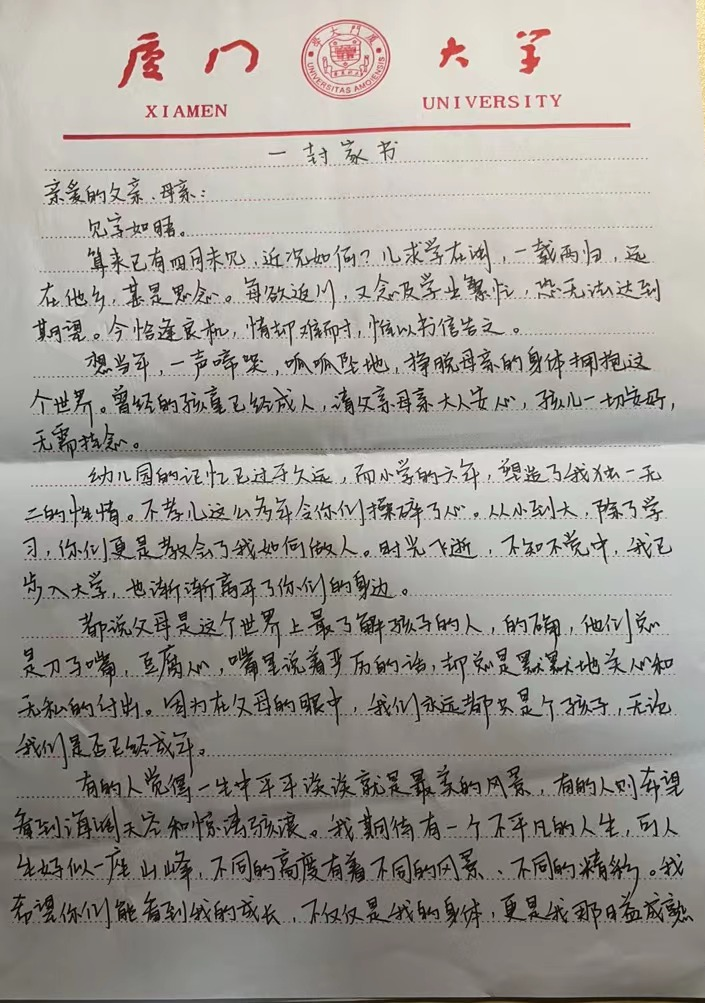 厦门大学
廈大門學
UNIVERSITAS AMOIENSIS
XIAMEN UNIVERSITY
一封家书
亲爱的父亲、母亲：
见字如晤。
算来已有四月未见，近况如何？儿求学在闽，一载两归，远
在他乡，甚是思念。每欲返川，又念及学业繁忙，恐无法达到
期望。今恰逢良机，情却难耐，惟以书信告之。
想当年，一声啼哭，呱呱坠地，挣脱母亲的身体拥抱这
个世界。曾经的孩童已经成人，请父亲母亲大人安心，孩儿一切安好，
无需挂念。
幼儿园的记忆已过于久远，而小学的六年，塑造了我独一无
二的性情。不孝儿这么多年令你们操碎了心。从小到大，除了学
习，你们更是教会了我如何做人。时光飞逝，不知不觉中，我已
步入大学，也渐渐离开了你们的身边。
都说父母是这个世界上最了解孩子的人，的确，他们总
是刀子嘴，豆腐心，嘴里说着严厉的话，却总是默默地关心和
无私的付出。因为在父母的眼中，我们永远都只是个孩子，无论
我们是否已经成年。
有的人觉得一生中平平淡淡就是最美的风景，有的人则希望
看到海阔天空和惊涛骇浪。我期待有一个不平凡的人生，可人
生好似一座山峰，不同的高度有着不同的风景、不同的精彩。我
希望你们能看到我的成长，不仅仅是我的身体，更是我那日益成熟